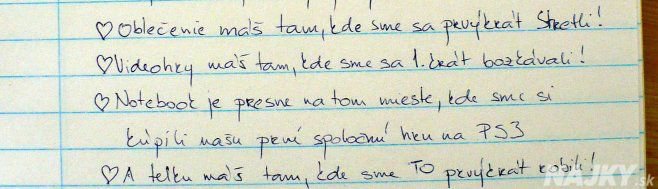 ♡Oblečenie máš tam, kde sme sa prvýkrát stretli!
♡Videohry máš tam, kde sme sa 1.krát bozkávali!
♡Notebook je presne na tom mieste, kde sme si
kúpili našu první spoločnú hru na PS3
♡A telku máš tam, kde sme TO prvýkrát robili!
NAJKY.sk